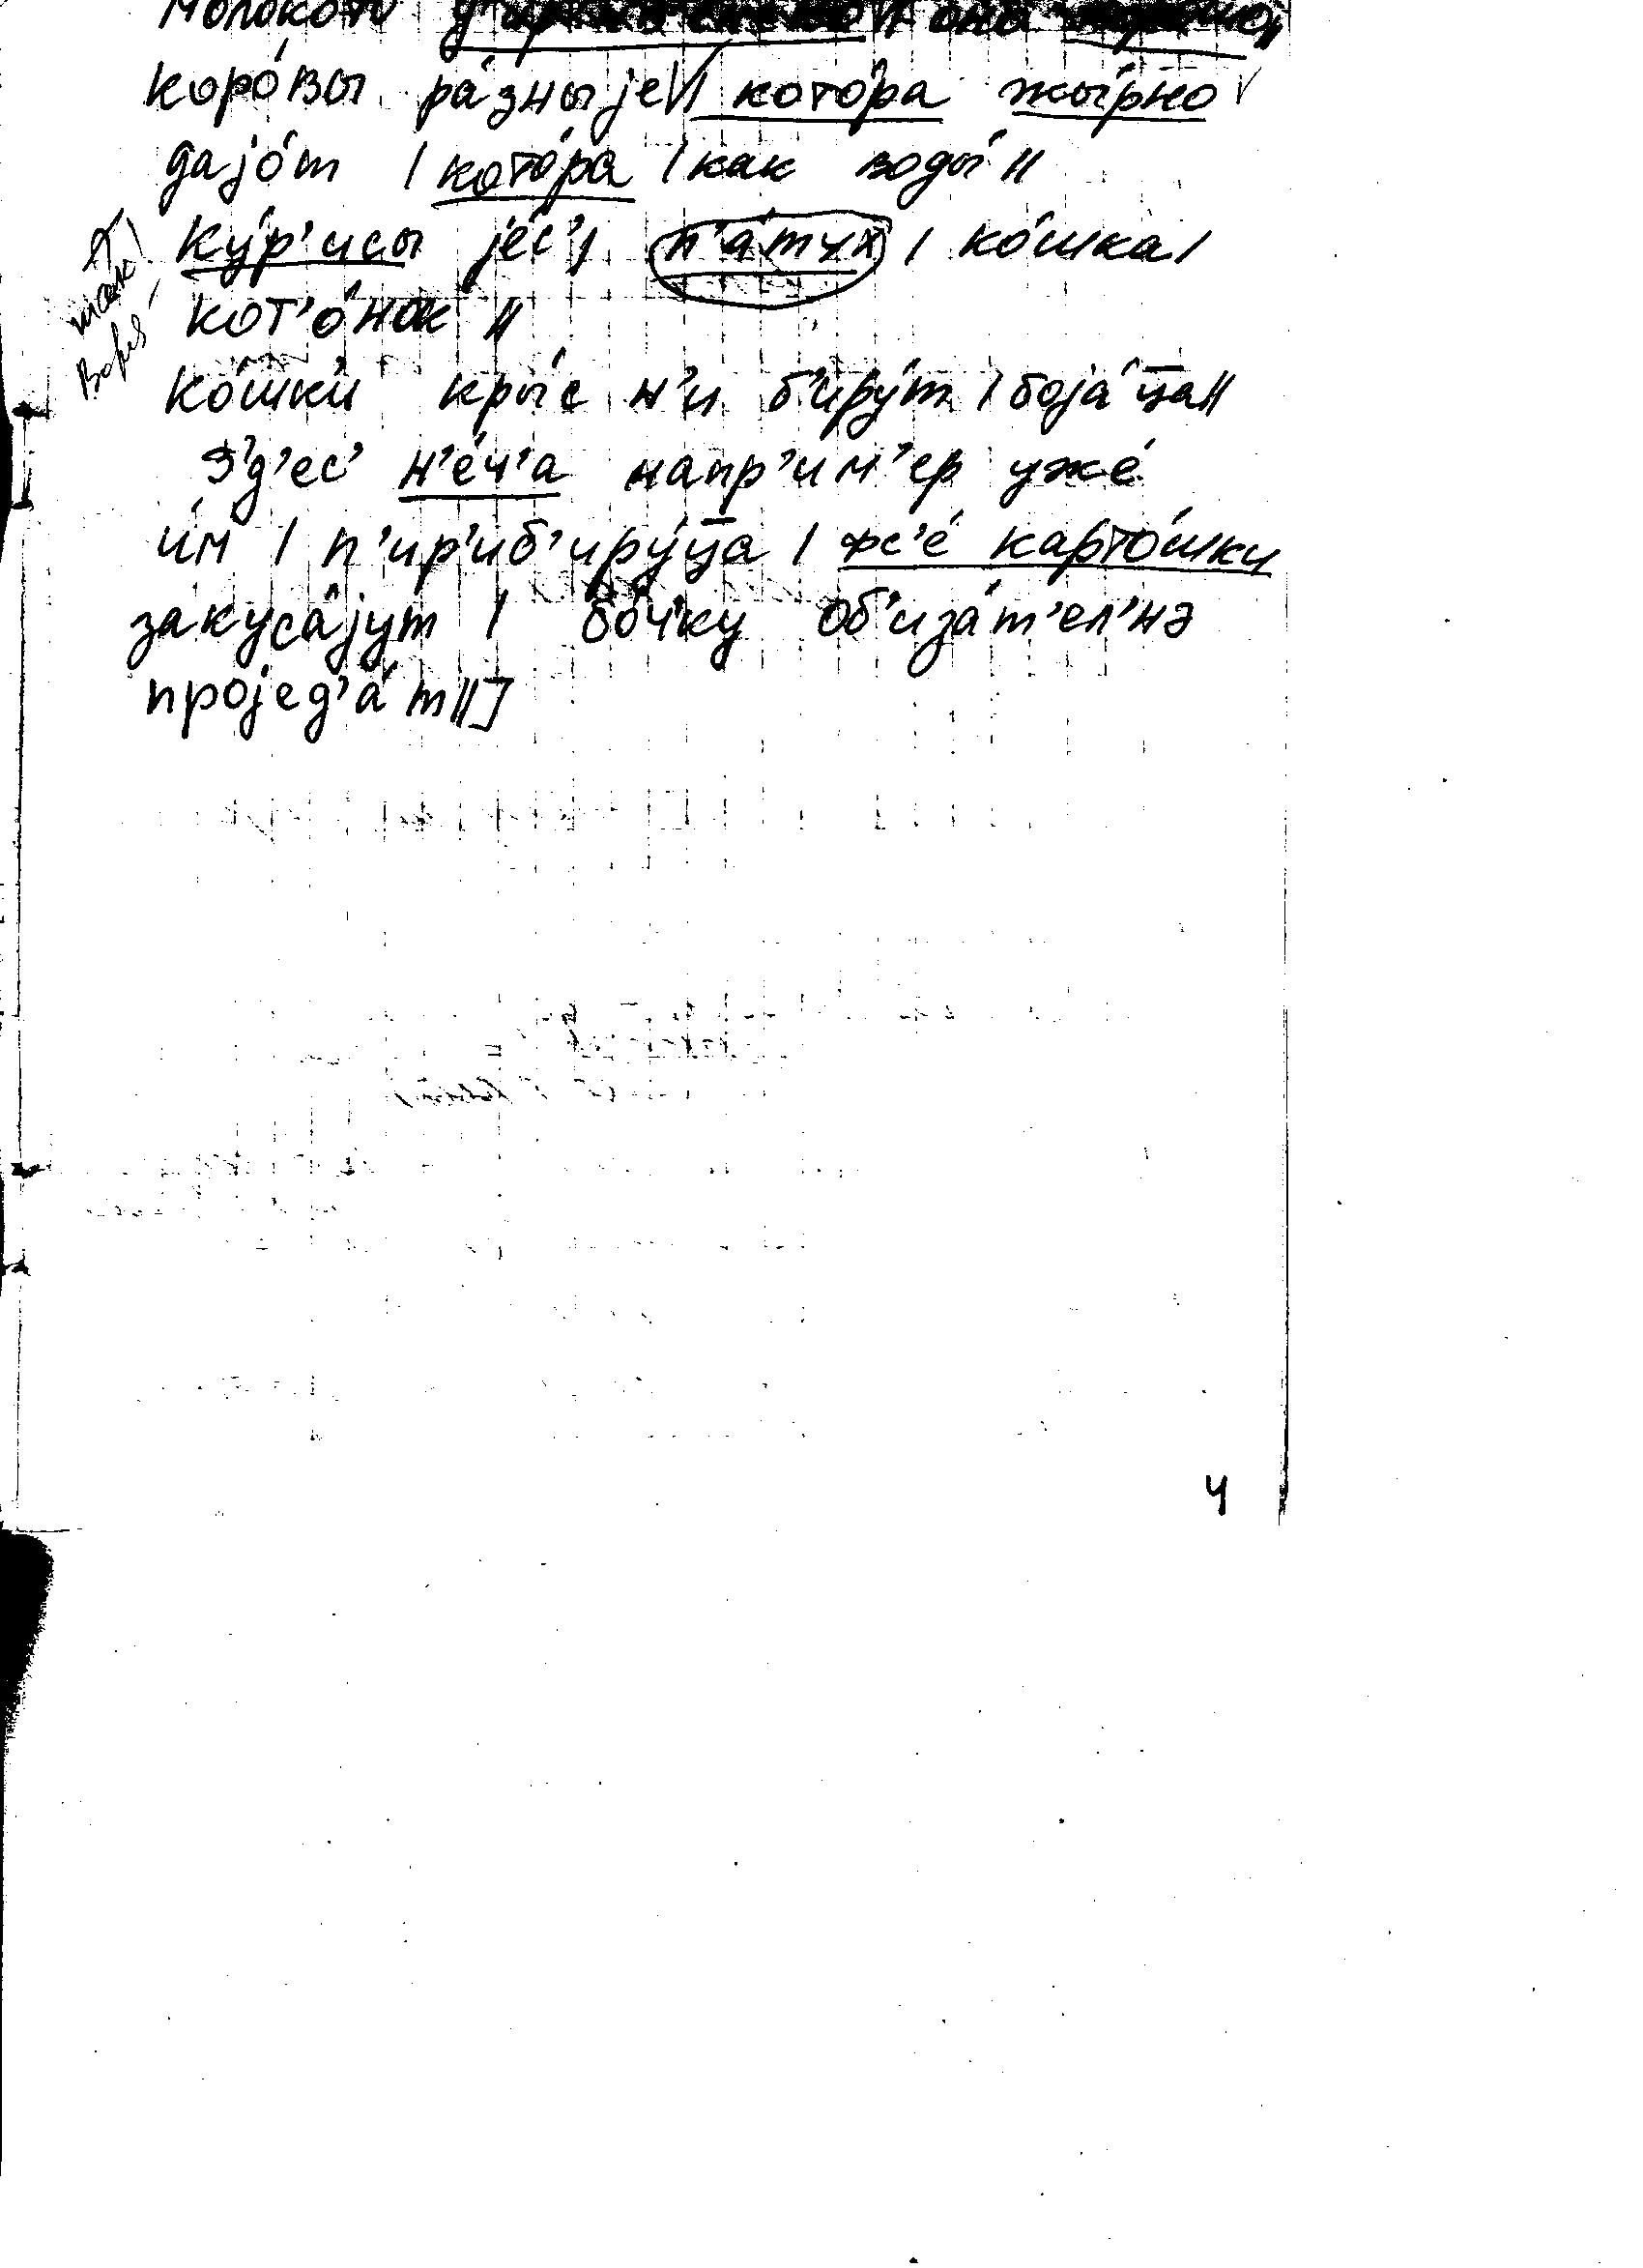 коро́вы ра́зныjе|/| кото́ра жы́рно √
даjо́т | кото́ра | как воды́ ||
ку́р'исы jе́с'| п'а́тух | ко́шка |
кот'о́нок ||
ко́шки кры́с н'и б'иру́т | боjа́ца ||
З'д'ес' н'е́ч'а напр'им'ер уже́
и́м | п'ир'иб'иру́ца | фс'е́ карто́шки
закуса́jут | бо́чку об'иза́т'ел'нә
проjед'а́т || ]
4